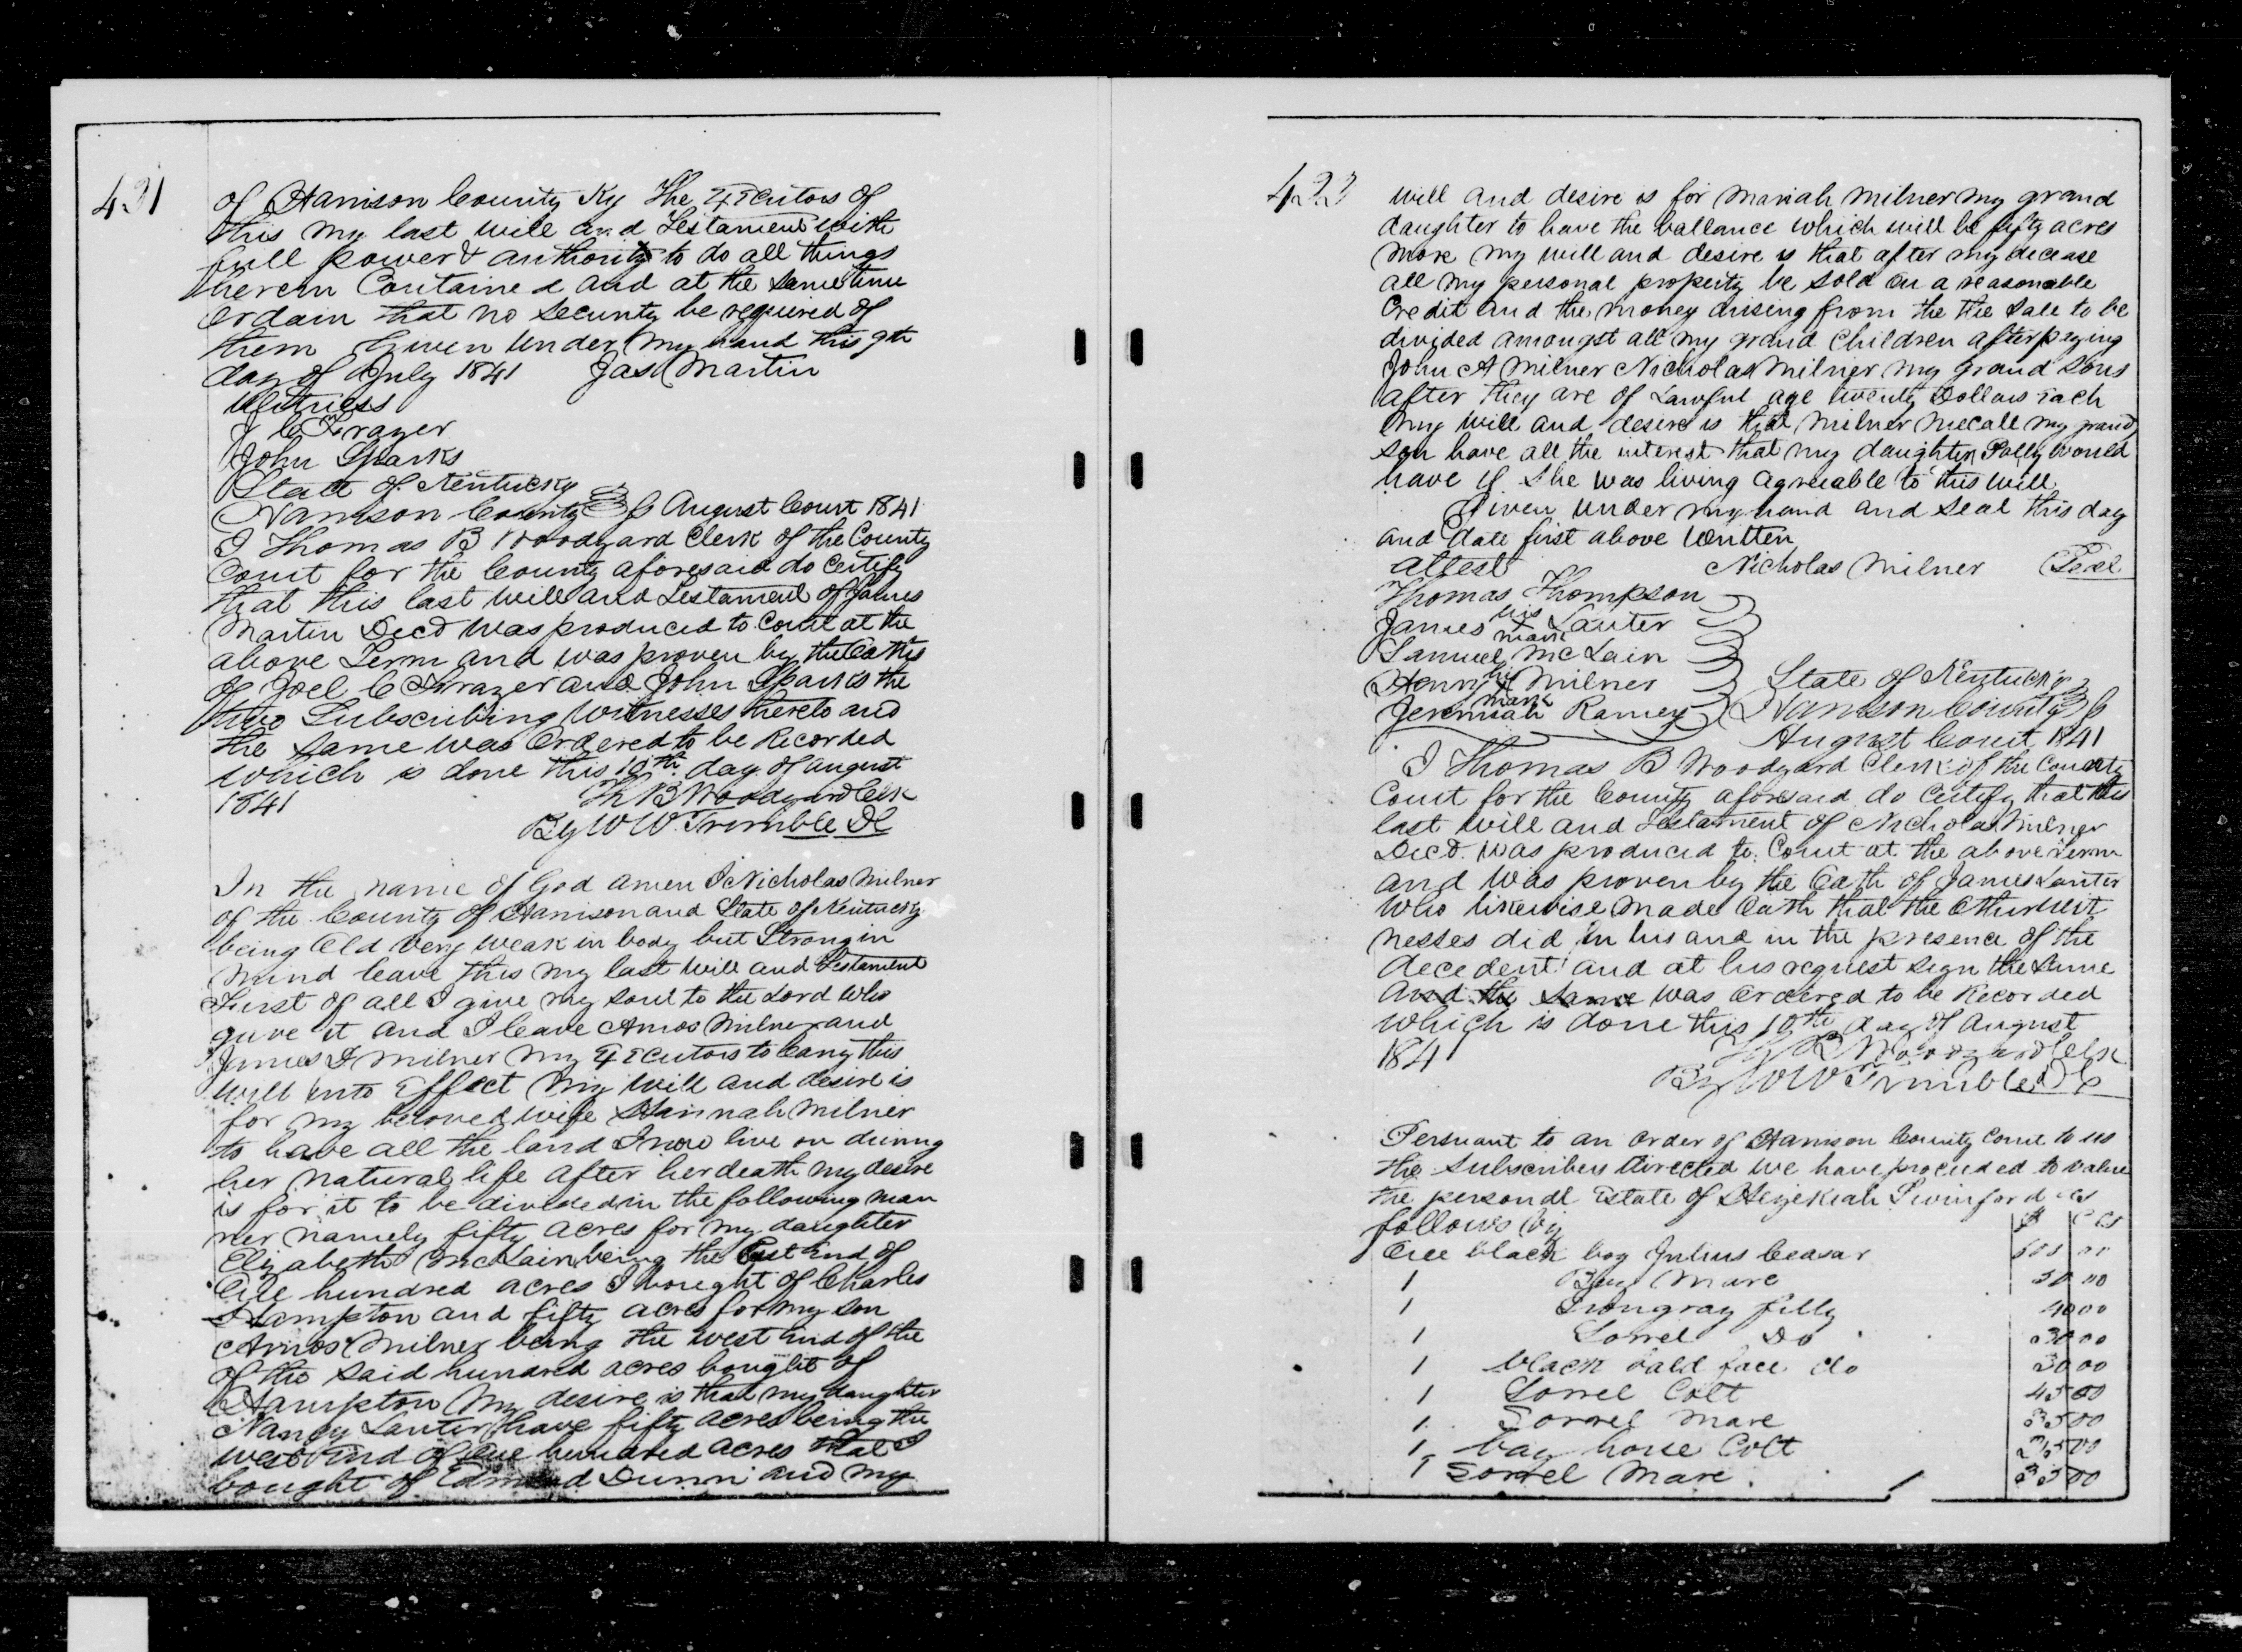 431
of Harrison County Ky the Executors of
this my last will and Testament with
full power & authority to do all things
herein Contained and at the same time
Ordain that no security be required of
them Given under my hand this 9th
day of July 1841 Jas Martin
Witness
J C Frazer
John Sparks
State of Kentucky
Harrison County August Court 1841
I Thomas B Woodyard Clerk of the County
Court for the County aforesaid do Certify
that this last will and Testament of James
Martin Decd was produced to Court at the
above Term and was proven by the Oaths
of Joel C Frazer and John Sparks the
two Subscribing Witnesses thereto and
the same was Ordered to be Recorded
which is done this 10th day of August
1841 Th B Woodyard Clk
By W W Trimble DC
In the name of God amen I Nicholas Milner
of the County of Harrison and State of Kentucky
being Old very weak in body but Strong in
mind leave this my last will and Testament
First of all I give my soul to the Lord who
gave it and I leave Amos Milner and
James Milner my Executors to Carry this
will into Effect My will and desire is
for my beloved wife Hannah Milner
to have all the land I now live on during
her natural life after her death my desire
is for it to be divided in the following man
ner namely fifty acres for my daughter
Elizabeth McLain being the East End of
One hundred acres I bought of Charles
Hampton and fifty acres for my son
Amos Milner being the west End of the
of the said hundred acres bought of
Hampton My desire is that my daughter
Nancy Lauter have fifty acres being the
west End of One hundred acres that I
bought of Edmund Dunn and my
will and desire is for Mariah Milner my grand
daughter to have the ballance which will be fifty acres
more My will and desire is that after my decease
all my personal property be sold on a reasonable
Credit and the money arising from the the sale to be
divided amongst all my grand Children after paying
John A Milner Nicholas Milner my grand sons
after they are of Lawful age twenty Dollars Each
My will and desire is that Milner Mecall my grand
son have all the interest that my daughter Polly would
have if she was living agreeable to this will
Given under my hand and seal this day
and date first above Written
attest Nicholas Milner Seal
Thomas Thompson
James his mark Lauter
Samuel McLain
Henry his mark Milner State of Kentucky
Jeremiah Ramey Harrison County
August Court 1841
I Thomas B Woodyard Clerk of the County
Court for the County aforesaid do certify that this
last will and Testament of Nicholas Milner
Decd. was produced to Court at the above Term
and was proven by the Oath of James Lauter
who likewise made Oath that the Other wit
nesses did in his and in the presence of the
decedent and at his request sign the same
and the same was Ordered to be Recorded
which is done this 10th day of August
1841 Th B Woodyard Clk
By W W Trimble DC
Persuant to an Order of Harrison County Court to us
the subscribers directed we have proceeded to value
the personal Estate of Hezekiah Swinford as
follows viz $ Cts
One black boy Julius Ceasar
1 Bay Mare 50 00
1 Irongray filly 40 00
1 Sorrel Do 30 00
1 black bald face do 30 00
1 Sorrel Colt 45 00
1 Sorrel Mare 35 00
1 bay horse Colt
1 Sorrel Mare